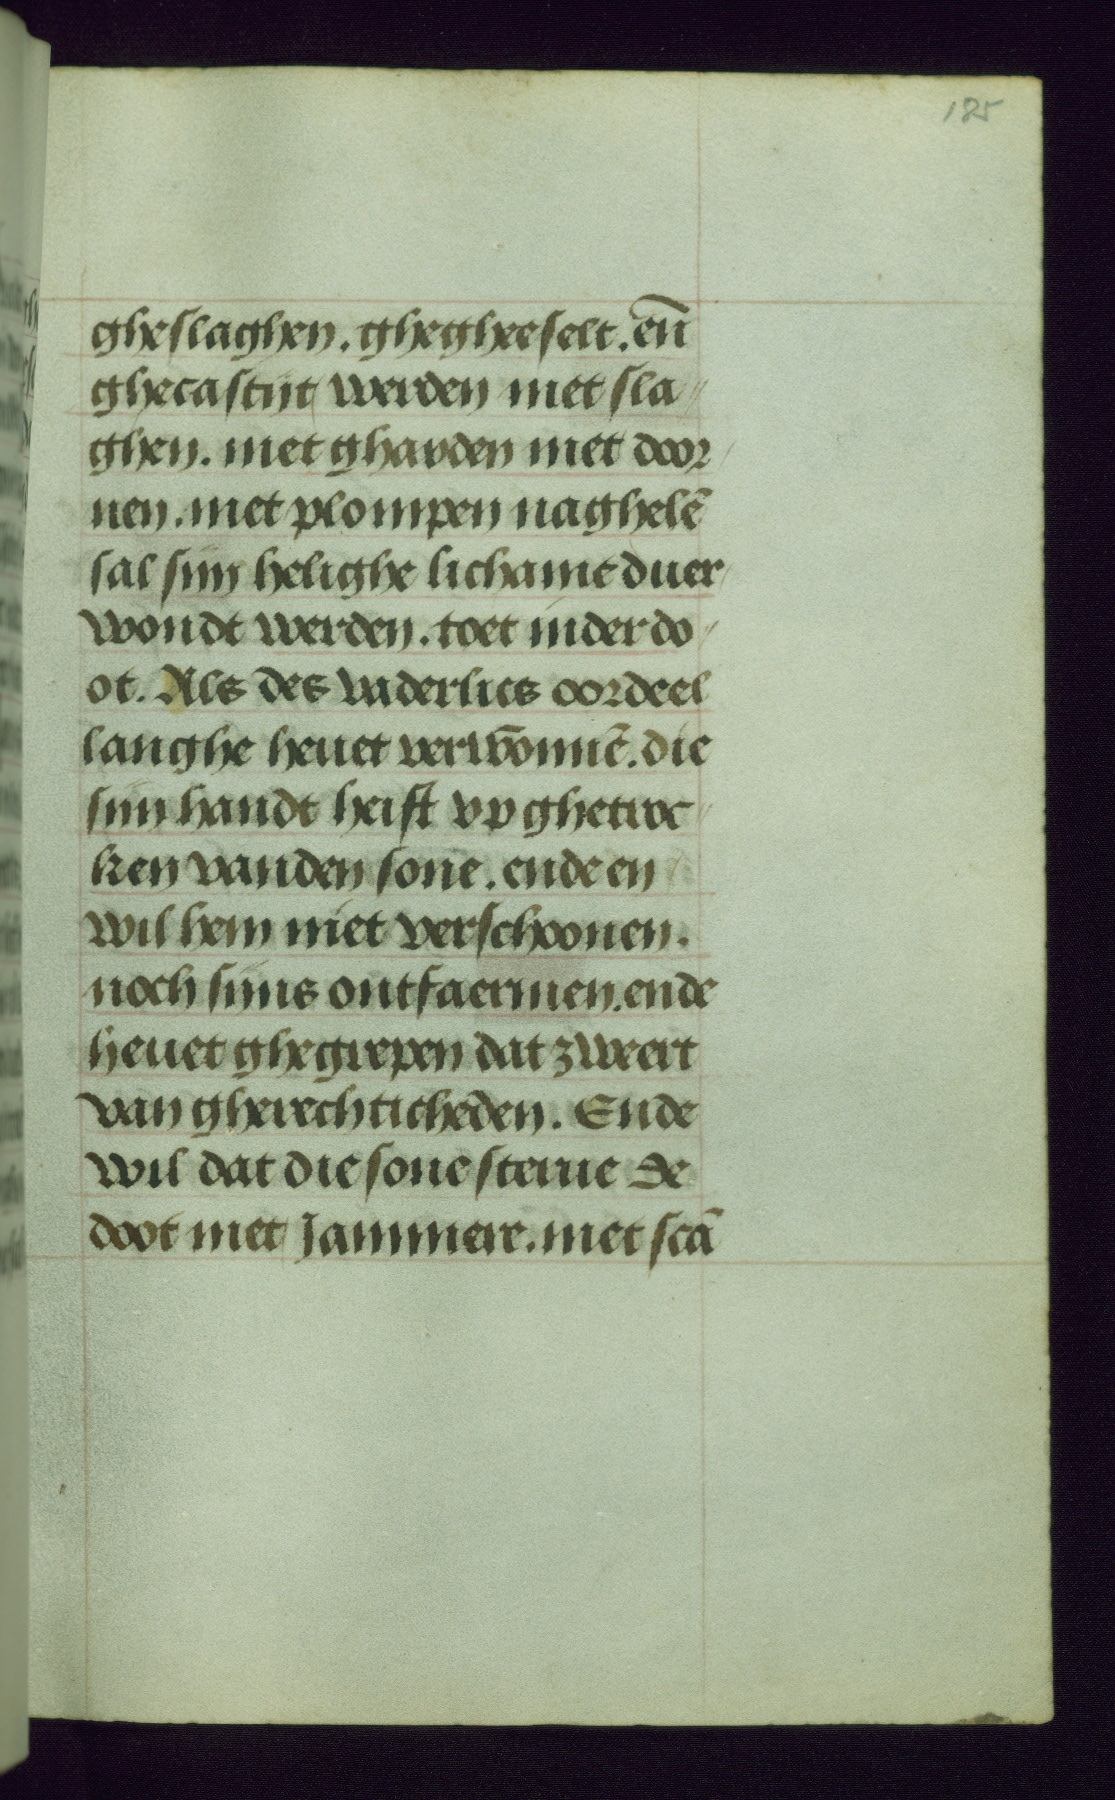 185
gheslaghen. ghegheeselt. en̄
ghecastijt werden met sla//
ghen. met gharden met door/
nen. met plompen naghelē
sal sijn helighe lichame duer/
wondt werden. toet in der do/
ot. Als des vaderlics oordeel
langhe heuet verwōnnē. die
sijn handt heift vp ghetroc/
ken vanden sone. ende en
wil hem niet verschoonen.
noch sijns ontfaermen. ende
heuet ghegrepen dat zweert
van gherechticheden. Ende
wil dat die sone sterue de
doot met Jammere. met scā